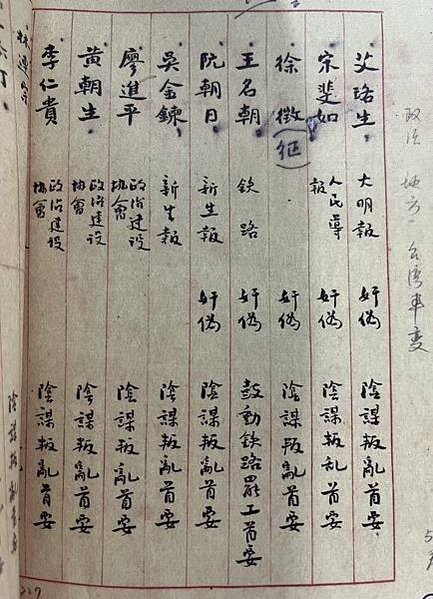 政治 地方 台湾事变
艾璐生 大明報 奸偽 陰謀叛亂首要
宋斐如 人民導報 奸偽 陰謀叛乱首要
徐徵(征) 奸偽 陰謀叛亂首要
王名朝 鉄路 奸偽 鼓動鉄路罷工首要
阮朝日 新生報 奸偽 陰謀叛亂首要
吳金鍊 新生報 陰謀叛亂首要
廖進平 政治建设協會 陰謀叛亂首要
黃朝生 政治建设協會 陰謀叛亂首要
李仁貴 政治建设協會 陰謀叛亂首要
陰謀叛亂首要